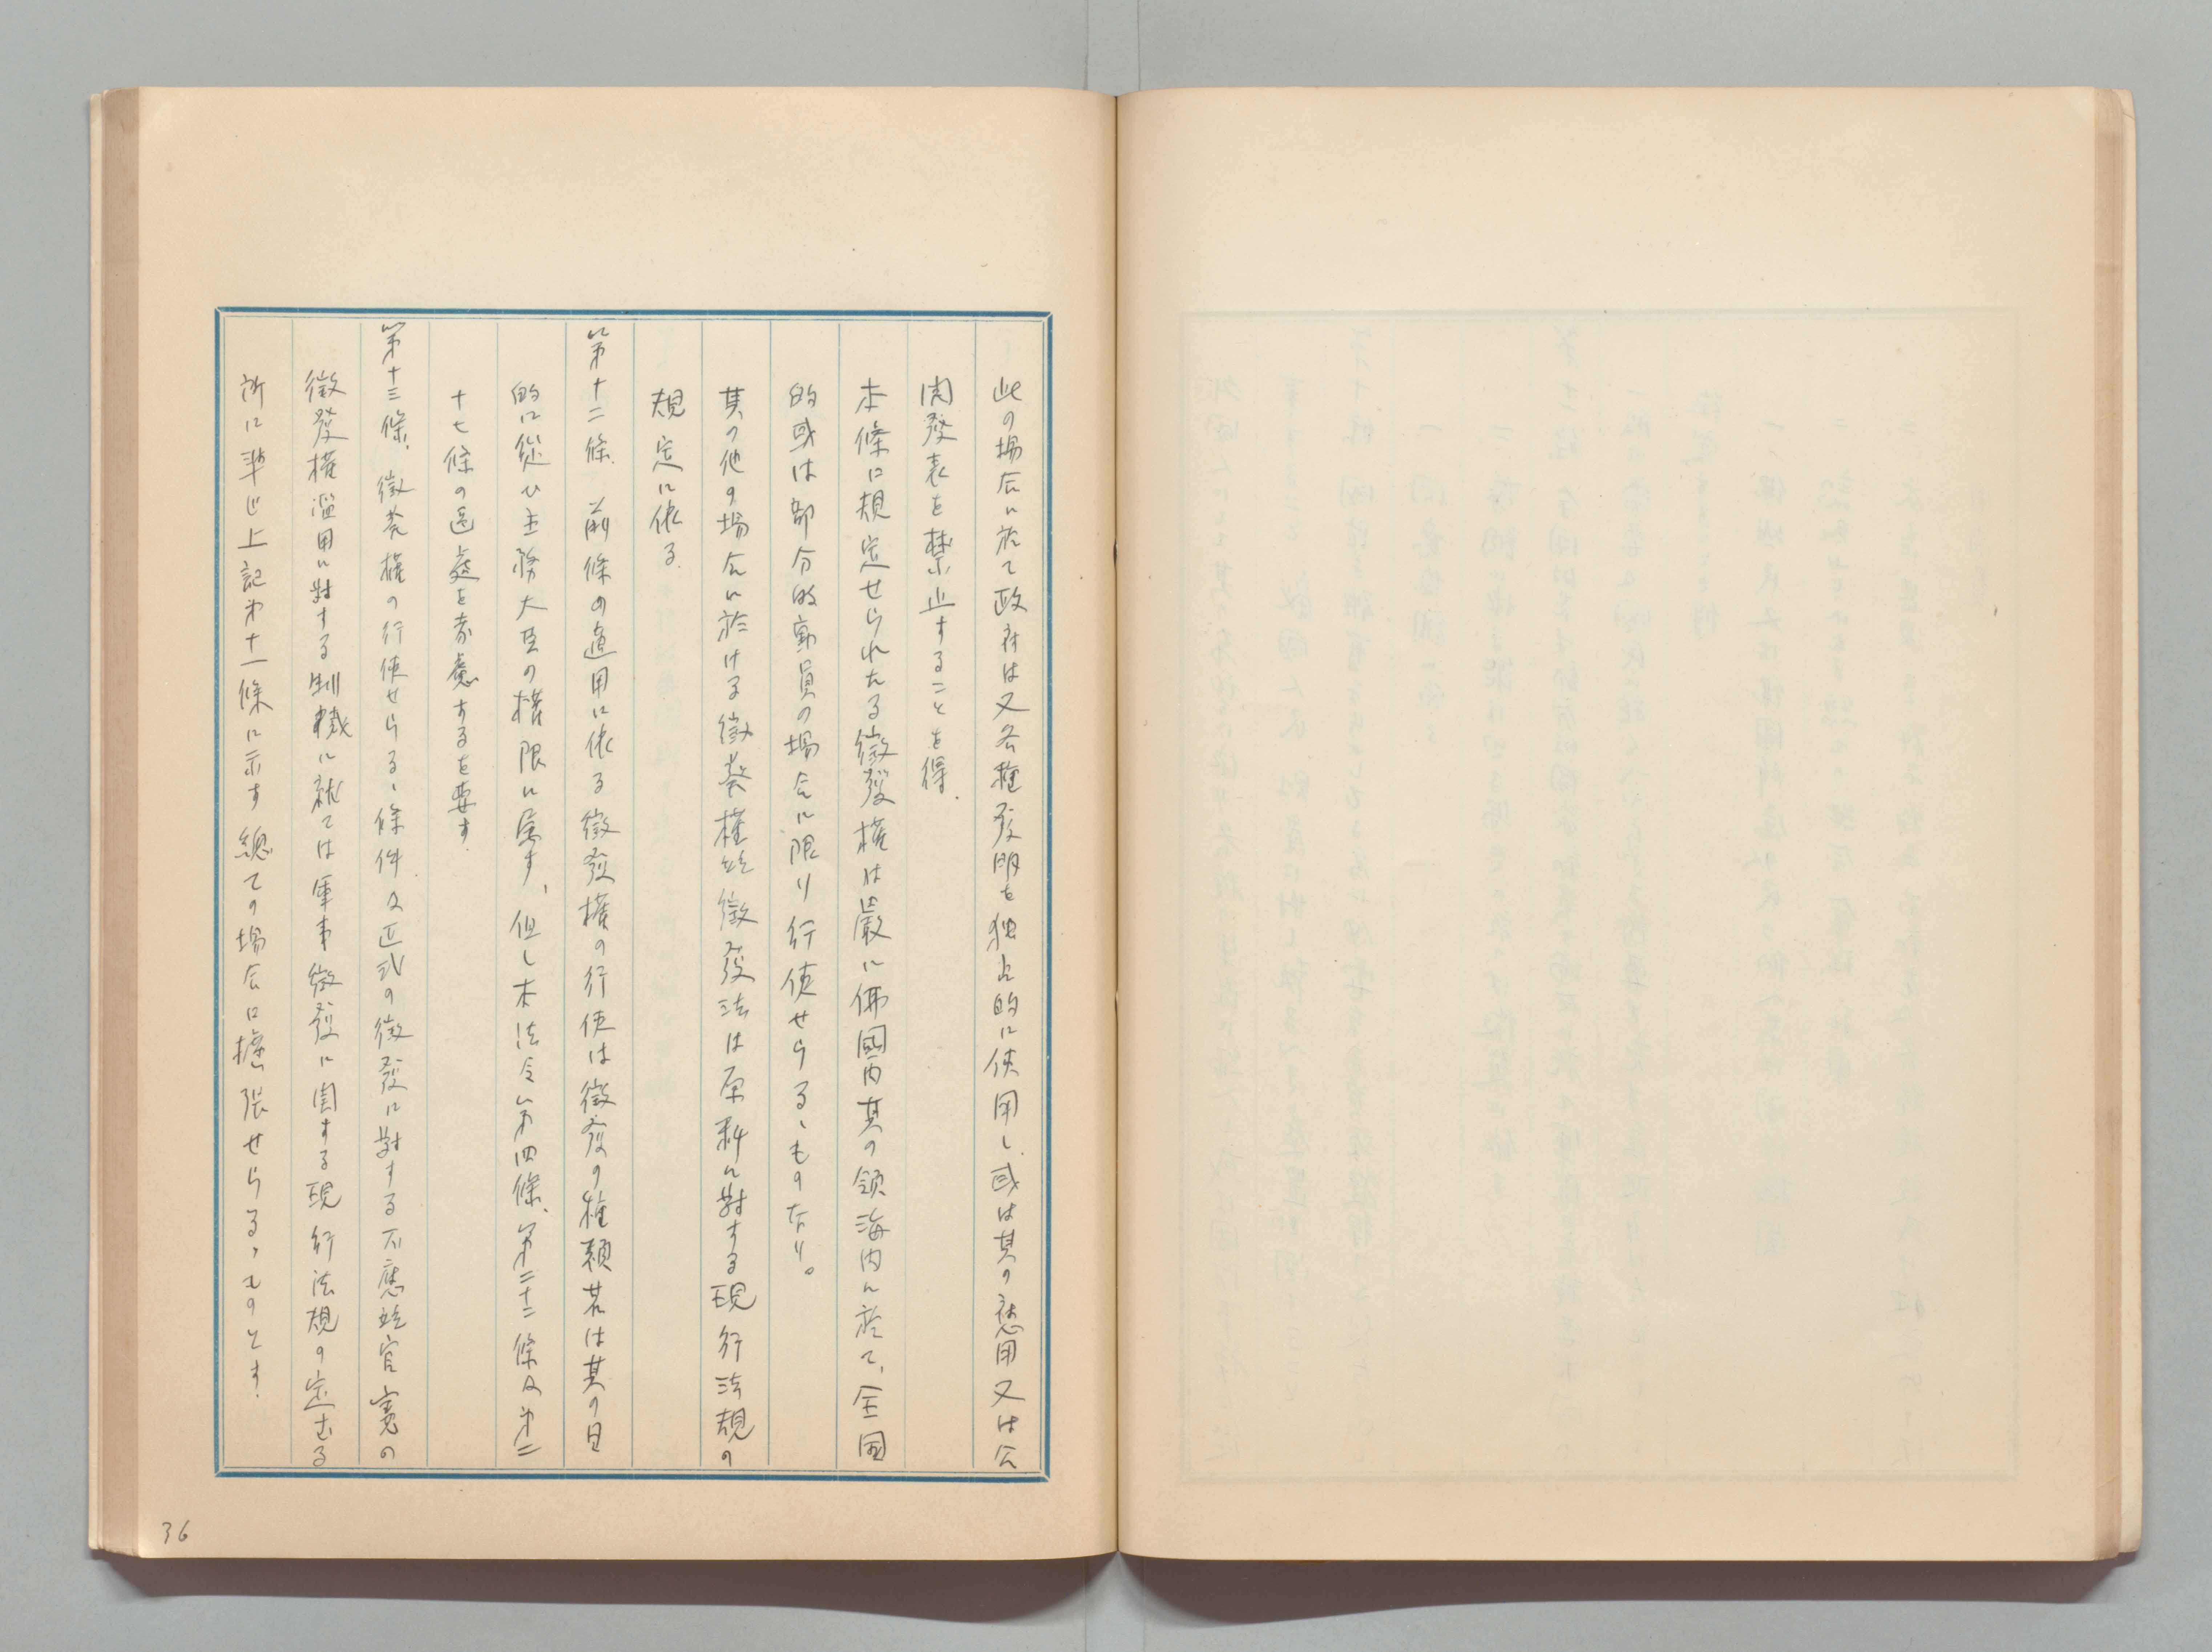 此の場合に於て政府は又各種發明を独占的に使用し或は其の應用又は公
開發表を禁止することを得.
本條に規定せられたる徴發権は嚴に佛國内其の領海内に於て、全国
的或は部分的動員の場合に限り行使せらるゝものなり。
其の他の場合に於ける徴発権並徴發法は原料に對する現行法規の
規定に依る.
第十二條. 前條の適用に依る徴發権の行使は徴發の種類若は其の目
的に從ひ主務大臣の権限に属す、但し本法令第四條、第二十二條及第二
十七條の適處を考慮するを要す.
第十三條. 徴発権の行使せらるゝ條件及正式の徴發に對する不應並官憲の
徴發権濫用に對する制裁に就ては軍事徴發に関する現行法規の定むる
所に準じ上記第十一條に示す總ての場合に擴張せらるゝものとす.
36